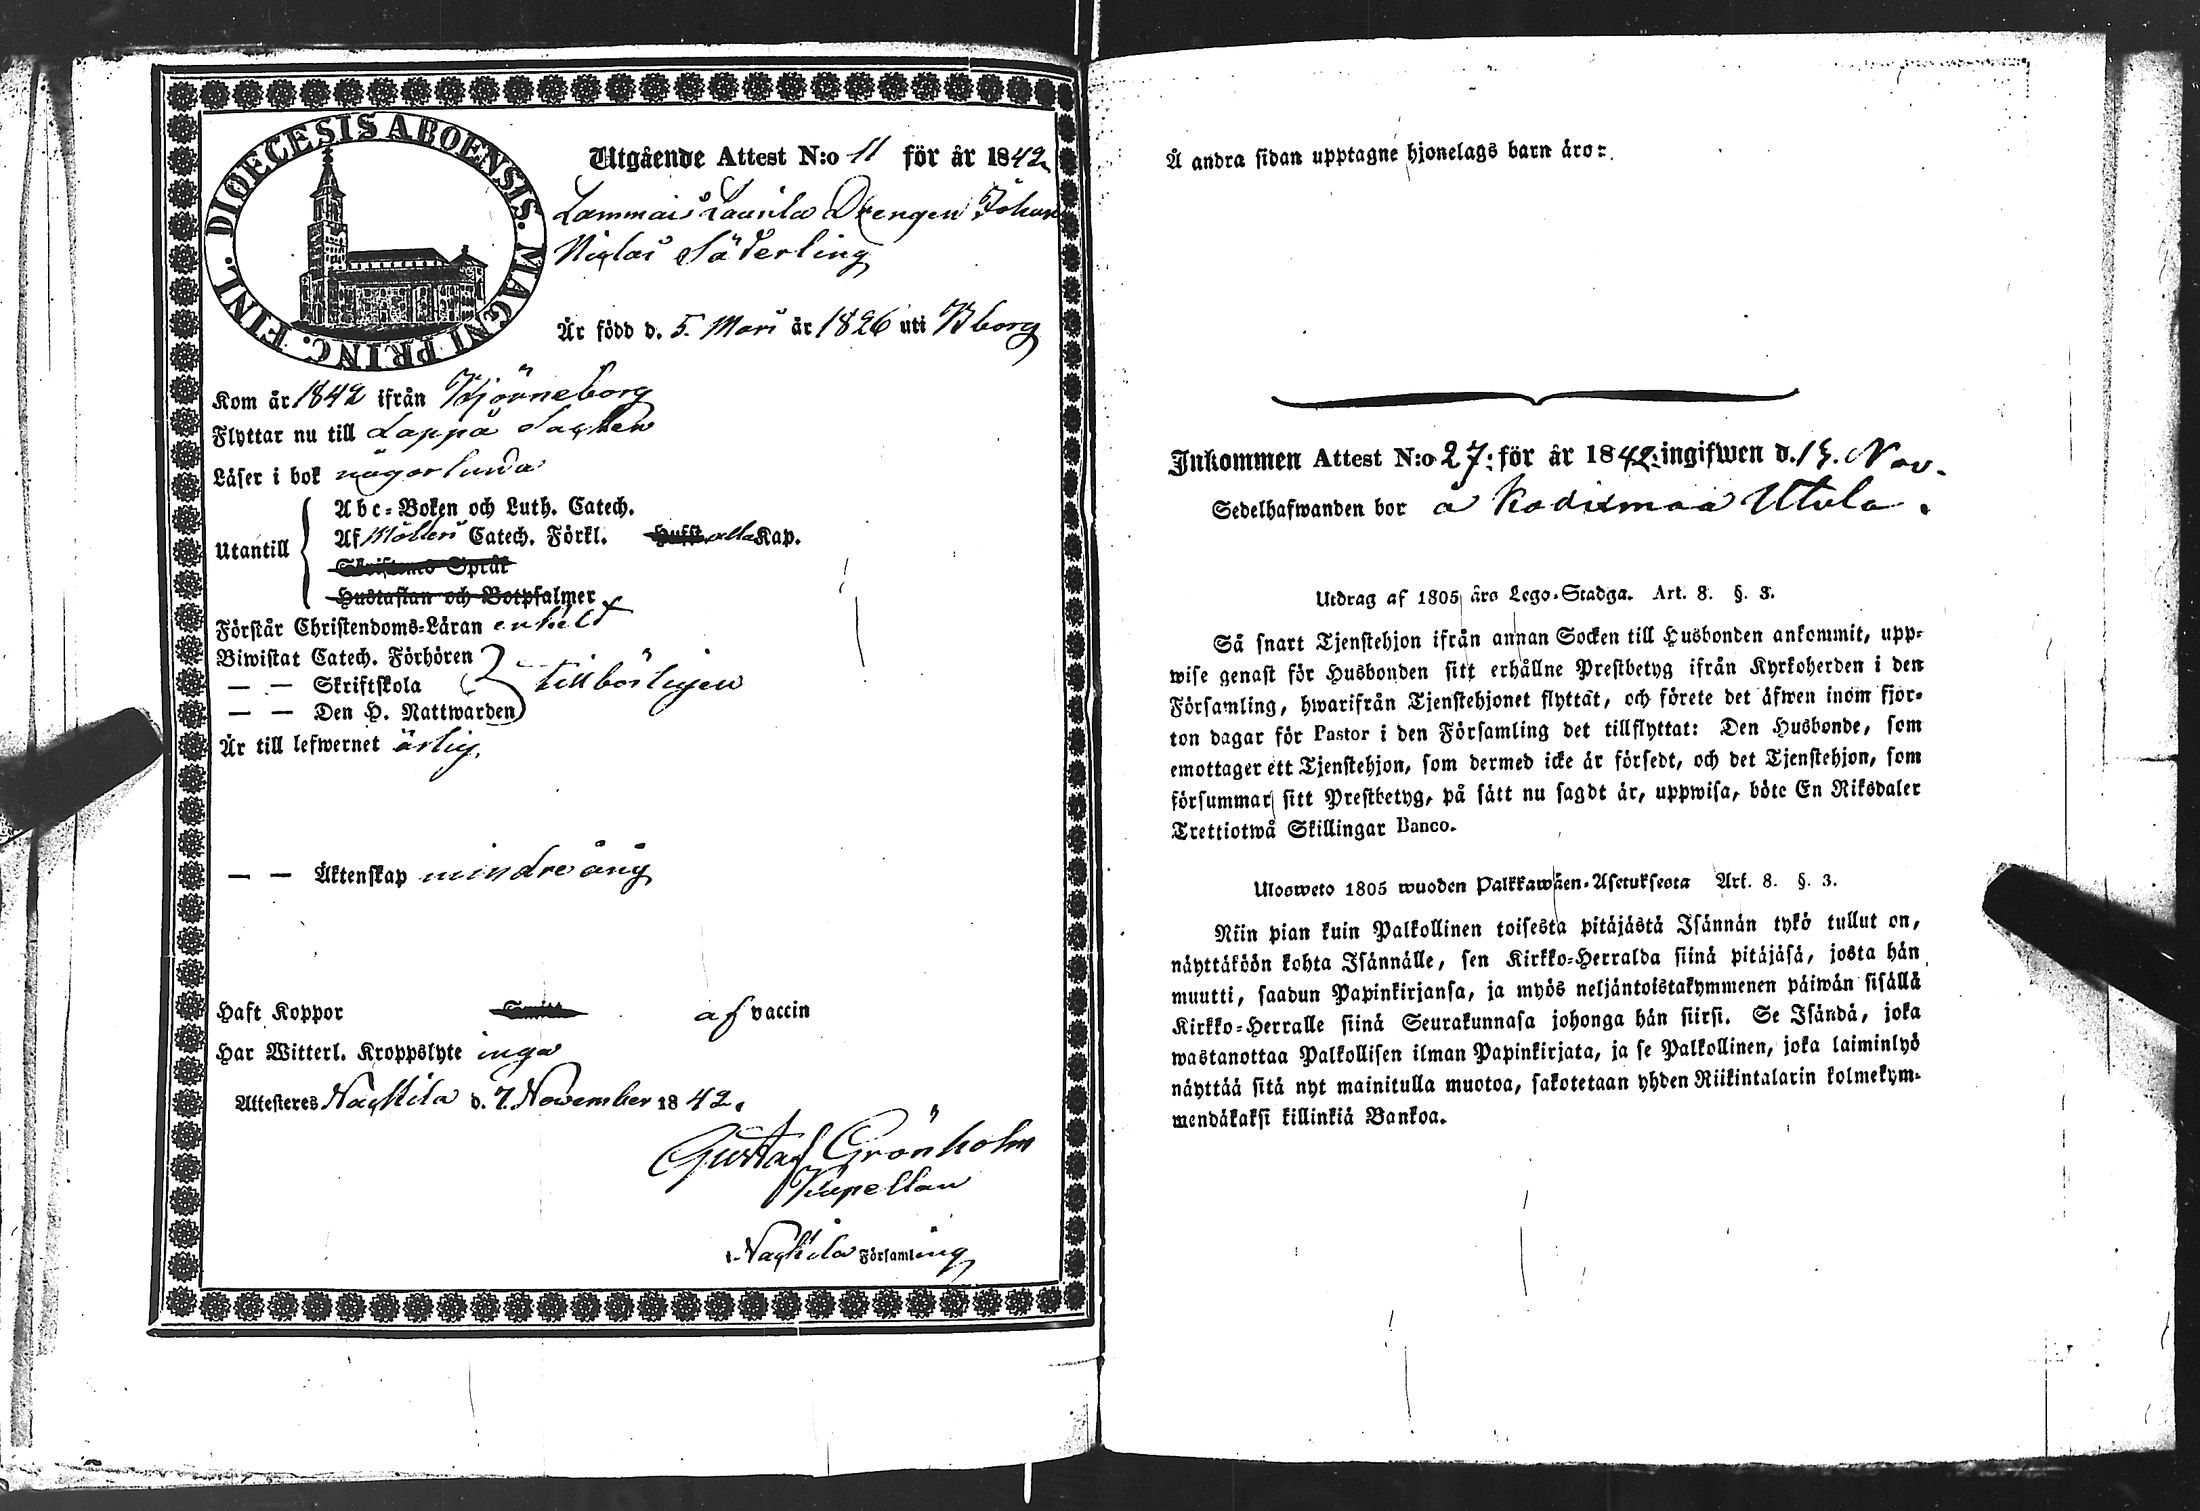 DIOECESIS ABOENSIS. MAGNI PRINC. FINL.
Utgående Attest N:o 11 för år 1842
Lammais Laurila Drengen Johan
Niclas Söderling
Är född d. 5. Mars år 1826 uti Bborg
Kom år 1842 ifrån Björneborg
Flyttar nu till Lappå Socken
Läser i bok någorlunda
Utantill
Abc-Boken och Luth. Catech.
Af Möllers Catech. Förkl. Hufst. alla Kap.
Skriftenes Språk
Hustaflan och Botpsalmer
Förstår Christendoms-Läran enkelt
Biwistat Catech. Förhören
— — Skriftskola tillbörligen
— — Den H. Nattwarden
Är till lefwernet ärlig
— — Äktenskap minderårig
Haft Koppor af vaccin
Har Witterl. Kroppslyte inga
Attesteres Nackila d. 7. November 1842.
Gustaf Grönholm
Kapellan
Nackila Församling
Å andra sidan upptagne hjonelags barn äro:
Inkommen Attest N:o 27: för år 1842: ingifwen d. 13. Nov.
Sedelhafwanden bor å Kodixmaa Utula.
Utdrag af 1805 års Lego-Stadga. Art. 8. §. 3.
Så snart Tjenstehjon ifrån annan Socken till Husbonden ankommit, upp-
wise genast för Husbonden sitt erhållne Prestbetyg ifrån Kyrkoherden i den
Församling, hwarifrån Tjenstehjonet flyttat, och förete det äfwen inom fjor-
ton dagar för Pastor i den Församling det tillflyttat: Den Husbonde, som
emottager ett Tjenstehjon, som dermed icke är försedt, och det Tjenstehjon, som
försummar sitt Prestbetyg, på sätt nu sagdt är, uppwisa, böte En Riksdaler
Trettiotwå Skillingar Banco.
Ulosweto 1805 wuoden Palkkawäen-Asetuksesta Art. 8. §. 3.
Niin pian kuin Palkollinen toisesta pitäjästä Isännän tykö tullut on,
näyttäköön kohta Isännälle, sen Kirkko-Herralda siinä pitäjäsä, josta hän
muutti, saadun Papinkirjansa, ja myös neljäntoistakymmenen päiwän sisällä
Kirkko-Herralle siinä Seurakunnasa johonga hän siirsi. Se Isändä, joka
wastanottaa Palkollisen ilman Papinkirjata, ja se Palkollinen, joka laiminlyö
näyttää sitä nyt mainitulla muotoa, sakotetaan yhden Riikintalarin kolmekym-
mendäkaksi killinkiä Bankoa.